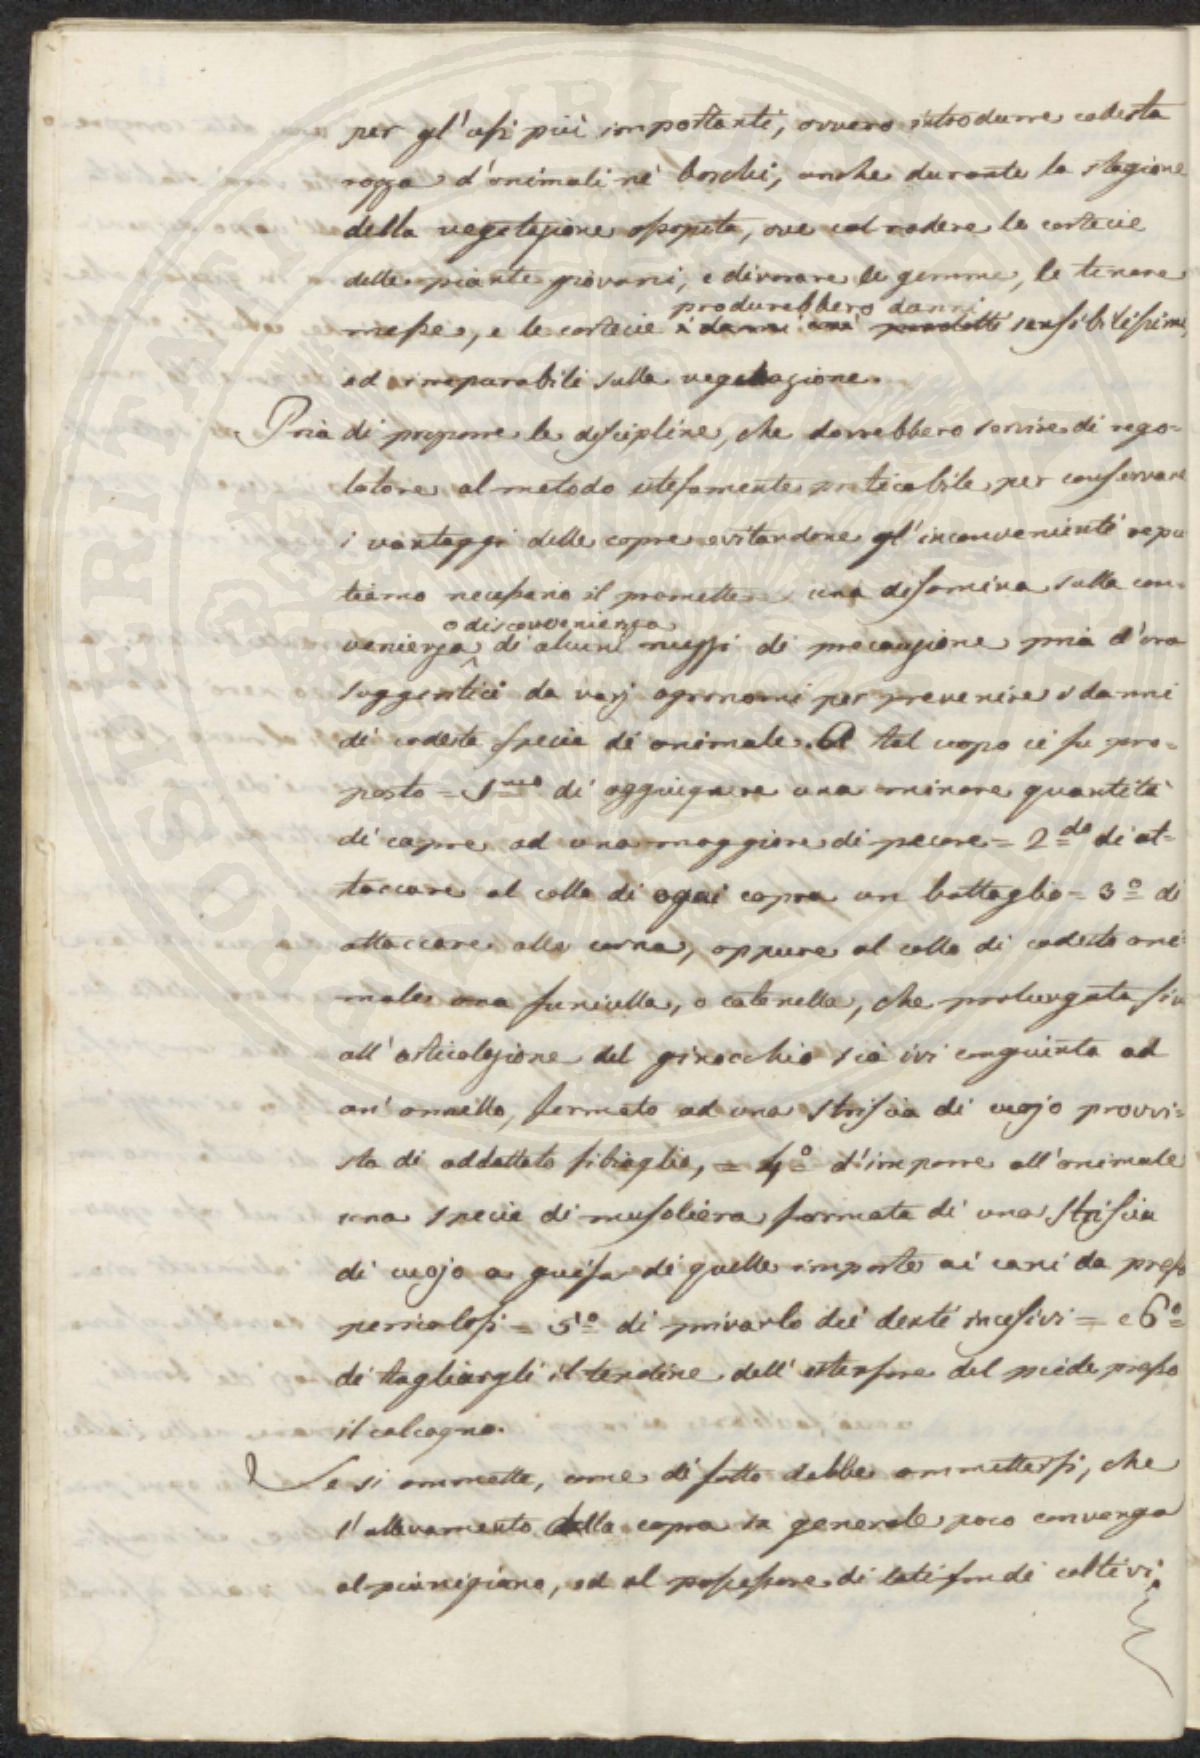 per gl'usi più importanti, ovvero introdurre codesta
razza d'animali ne' boschi, anche durante la stagione
della vegetazione sospesa, ove col rodere le corteccie
delle piante giovani, e divorare le gemme, le tenere
produrebbero danni
messe, e le corteccie i danni prodotti sensibilissimi,
ed irreparabili sulla vegetazione.
Pria di proporre le discipline, che dovrebbero servire di rego-
latore al metodo utilmente praticabile per conservare
i vantaggi delle capre evitandone gl'inconvenienti repu
tiamo necessario il premettere una disamina sulla con-
o disconvenienza
venienza di alcuni mezzi di precauzione pria d'ora
suggeritici da varj agronomi per prevenire i danni
di codesta specie di animale. A tal uopo ci fu pro-
posto = 1.mo di aggiugnere una minore quantità
di capre ad una maggiore di pecore = 2.do di at-
taccare al collo di ogni capra un battaglio = 3.o di
attaccare alle corna, oppure al collo di codesto ani-
male una funicella, o catenella, che prolungata sin
all'articolazione del ginocchio sia ivi congiunta ad
un'annello, fermato ad una striscia di cuojo provvi-
sta di addattato fibiaglio, = 4.o d'imporre all'animale
una specie di musoliera formata di una striscia
di cuojo a guisa di quelle imposte ai cani da presso
pericolosi = 5.o di privarlo dei denti incisivi = e 6.o
di tagliargli il tendine dell'estensore del piede presso
il calcagno.
Se si ammette, come di fatto debbe ammettersi, che
l'allevamento della capra in generale poco convenga
al piannigiano, ed al possessore di latifondi coltivi